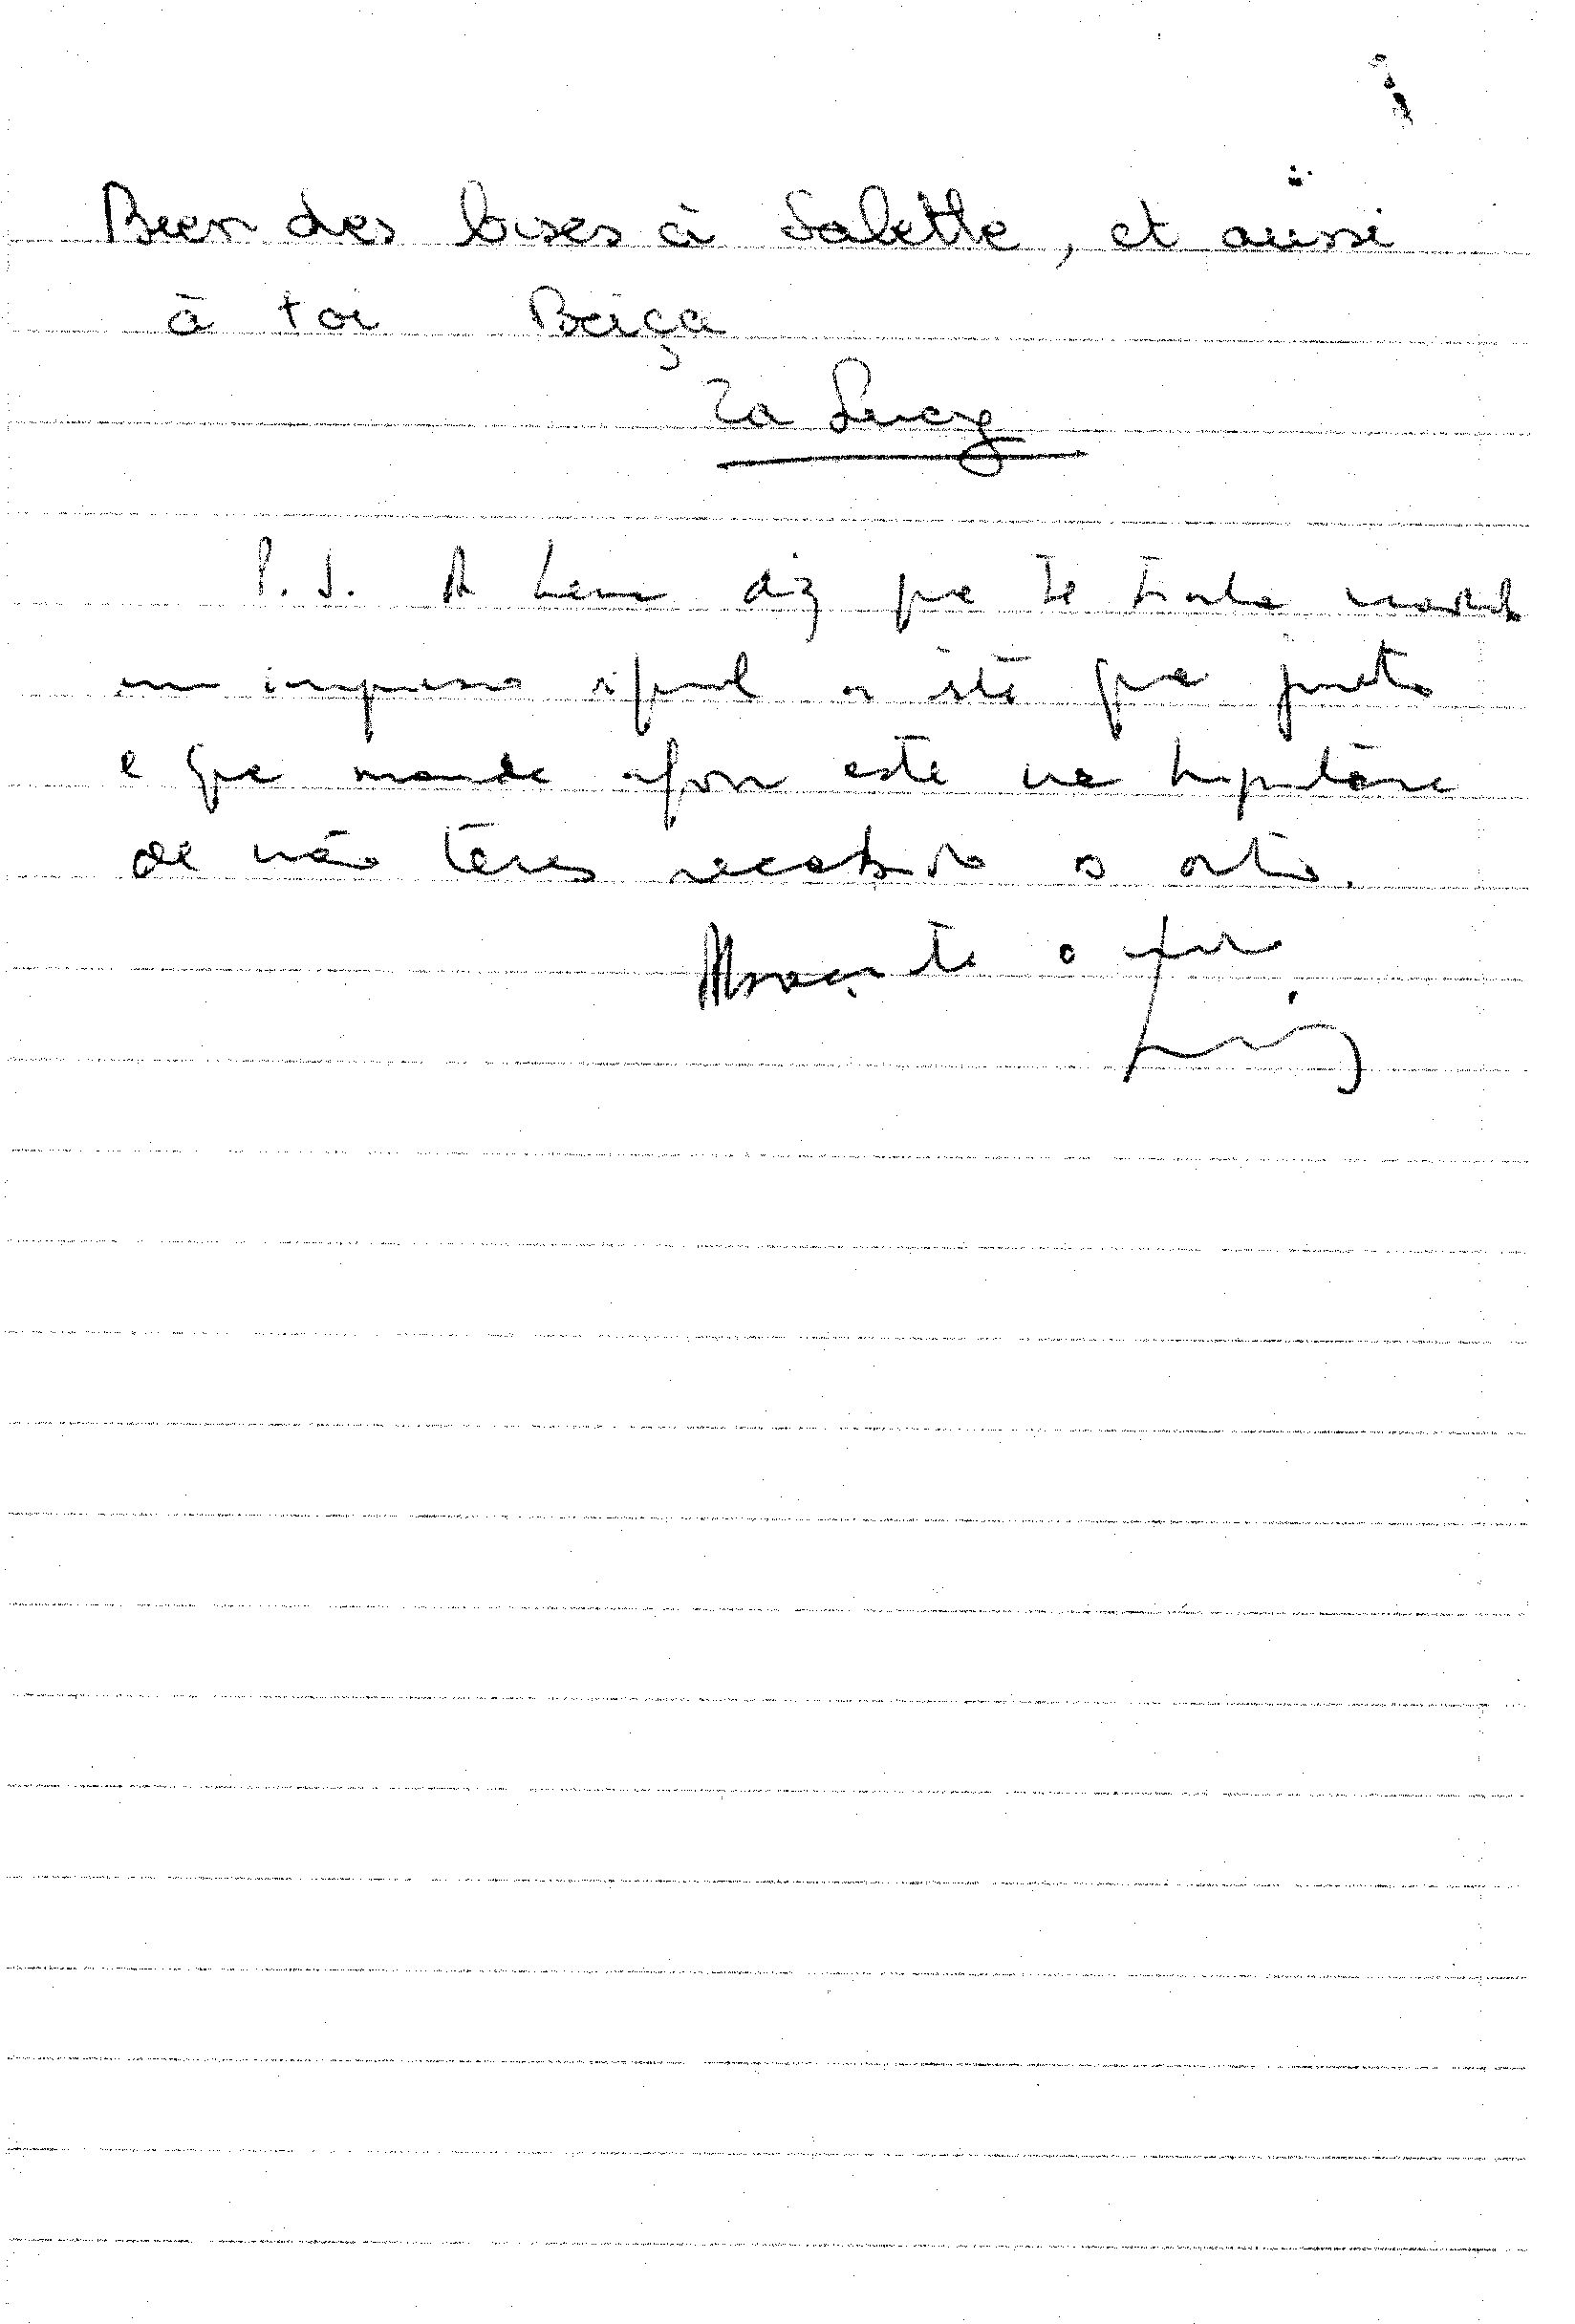 Bien des bises à Salette, et aussi
à toi Beiça
Ta Lucy
P.S. A diz que te tinha
um impresso igual a este que junto
e que manda agora este na hipótese
de não teres recebido o outro.
Abraça-te o
Luís